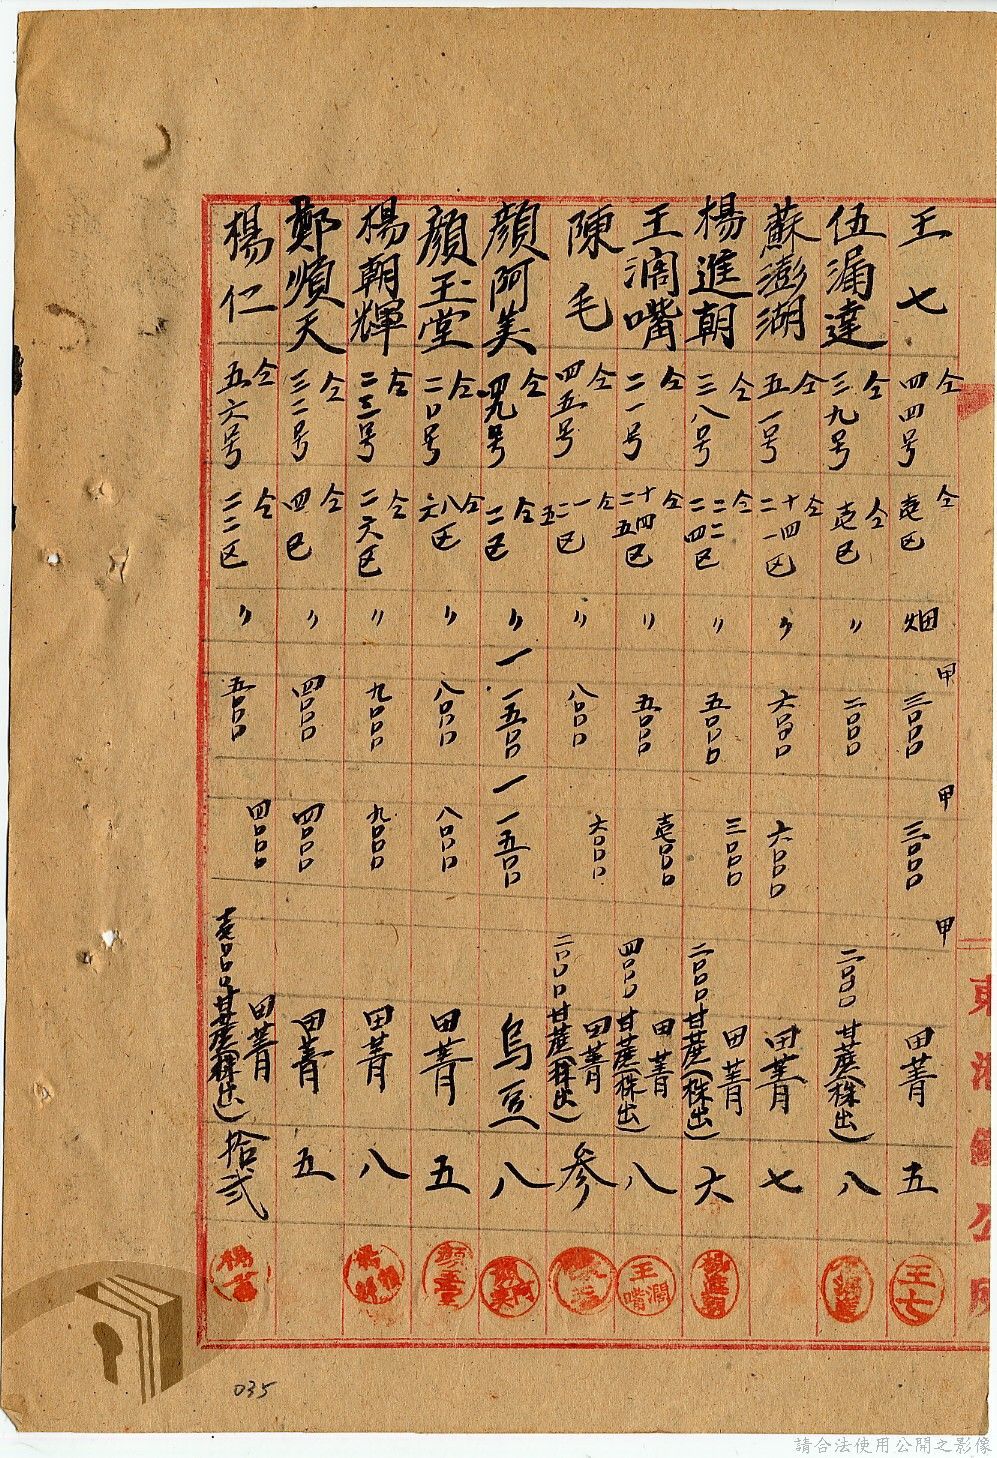 王七 仝四四号 仝壱区 畑 甲三〇〇〇 甲三〇〇〇 甲 田菁 五 王七
伍漏達 仝三九号 仝壱区 〃 二〇〇〇 二〇〇〇 甘蔗(株出) 八
蘇澎湖 仝五一号 仝十四 二一区 〃 六〇〇〇 六〇〇〇 田菁 七
楊進朝 仝三八号 仝二二 二四区 〃 五〇〇〇 三〇〇〇 田菁 二〇〇〇 甘蔗(株出) 六 楊進朝
王濶嘴 仝二一号 仝十四 二五区 〃 五〇〇〇 壱〇〇〇 田菁 四〇〇〇 甘蔗(株出) 八 王濶嘴
陳毛 仝四五号 仝一二五区 〃 八〇〇〇 六〇〇〇 田菁 二〇〇〇 甘蔗(株出) 参
顏阿美 仝四九号 仝二区 〃 一一五〇〇 一一五〇〇 烏豆 八
顏玉堂 仝二〇号 仝八六区 〃 八〇〇〇 八〇〇〇 田菁 五
楊朝輝 仝二三号 仝二六区 〃 九〇〇〇 九〇〇〇 田菁 八
鄭順天 仝三二号 仝四区 〃 四〇〇〇 四〇〇〇 田菁 五
楊仁 仝五六号 仝二二区 〃 五〇〇〇 四〇〇〇 田菁 壱〇〇〇 甘蔗(株出) 拾弐
035
請合法使用公開之影像